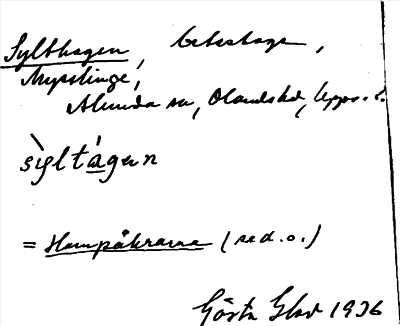 Sylthagen, beteshage,
Mysslinge,
Alunda sn, Olands hd, Upps. l.
sỳltágan
= Hampåkrarna (se d. o.)
Gösta Glad 1936